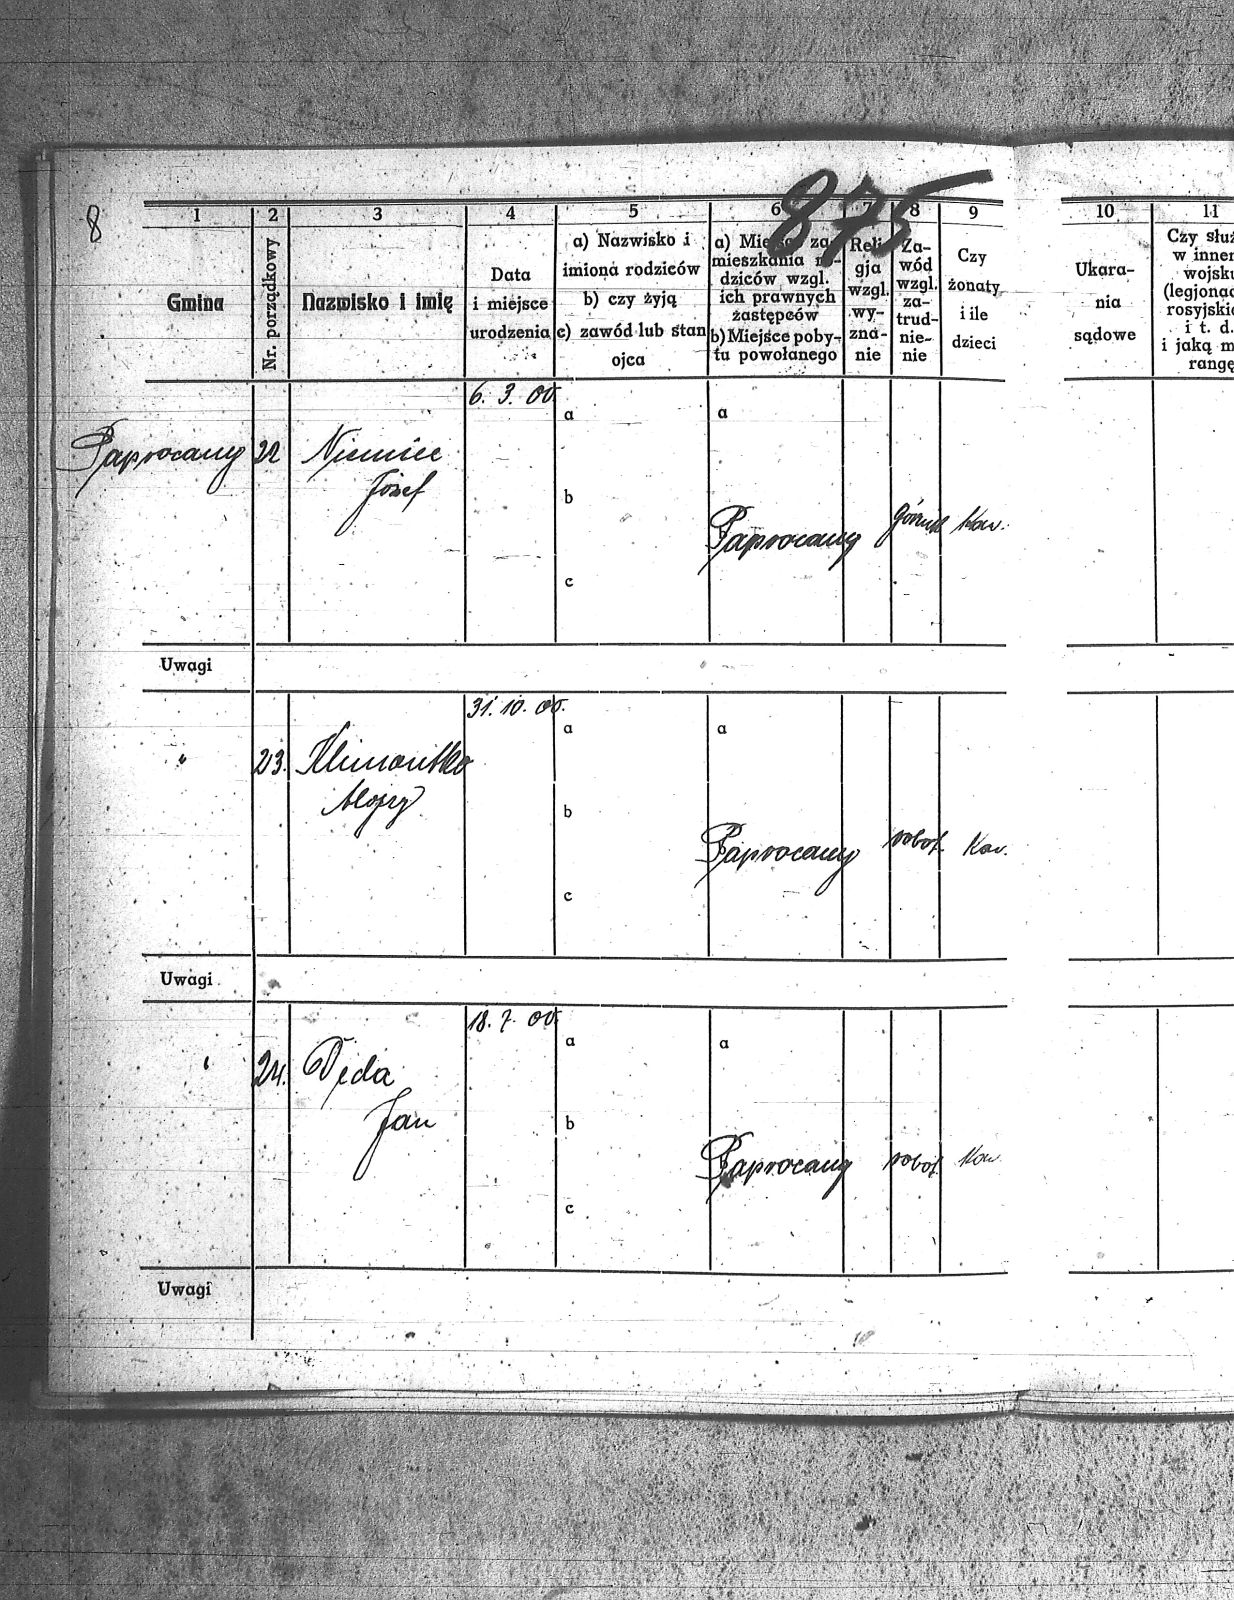 875
8
1 2 3 4 5 6 7 8 9 10 11
Gmina
Nr. porządkowy
Nazwisko i imię
Data
i miejsce
urodzenia
a) Nazwisko i
imiona rodziców
b) czy żyją
c) zawód lub stan
ojca
a) Miejsce za-
mieszkania ro-
dziców wzgl.
ich prawnych
zastępców
b) Miejsce poby-
tu powołanego
Reli-
gja
wzgl.
wy-
zna-
nie
Za-
wód
wzgl.
za-
trud-
nie-
nie
Czy
żonaty
i ile
dzieci
Ukara-
nia
sądowe
Czy służ
w innem
wojsku
(legjonac
rosyjskie
i t. d.
i jaką m
rangę
6. 3. 00.
a a
Paprocany 22 Niemiec
Józef
b
Paprocany górnik Kaw.
c
Uwagi
31. 10. 00.
a a
" 23. Klimontko
Alojzy
b
Paprocany robot. Kaw.
c
Uwagi
18. 7. 00.
a a
" 24.
Jan
b
Paprocany robot. Kaw.
c
Uwagi